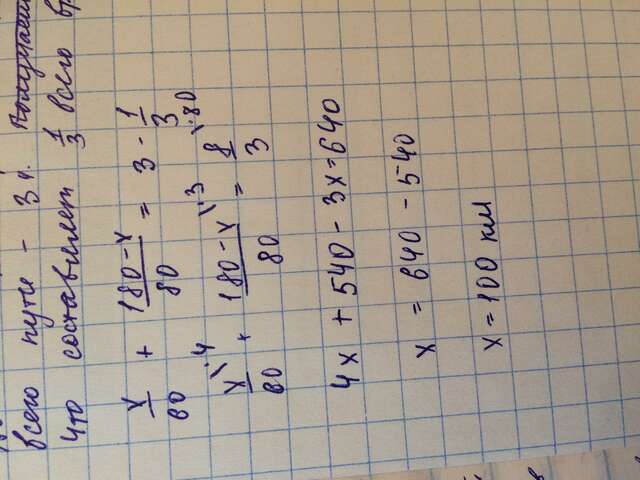 всего пути - 3 ч.
что составляет 1/3 всего
x/60 + 180-x/80 = 3 - 1/3
x\4/60 + 180-x\3/80 = 8\80/3
4x + 540 - 3x = 640
x = 640 - 540
x = 100 км